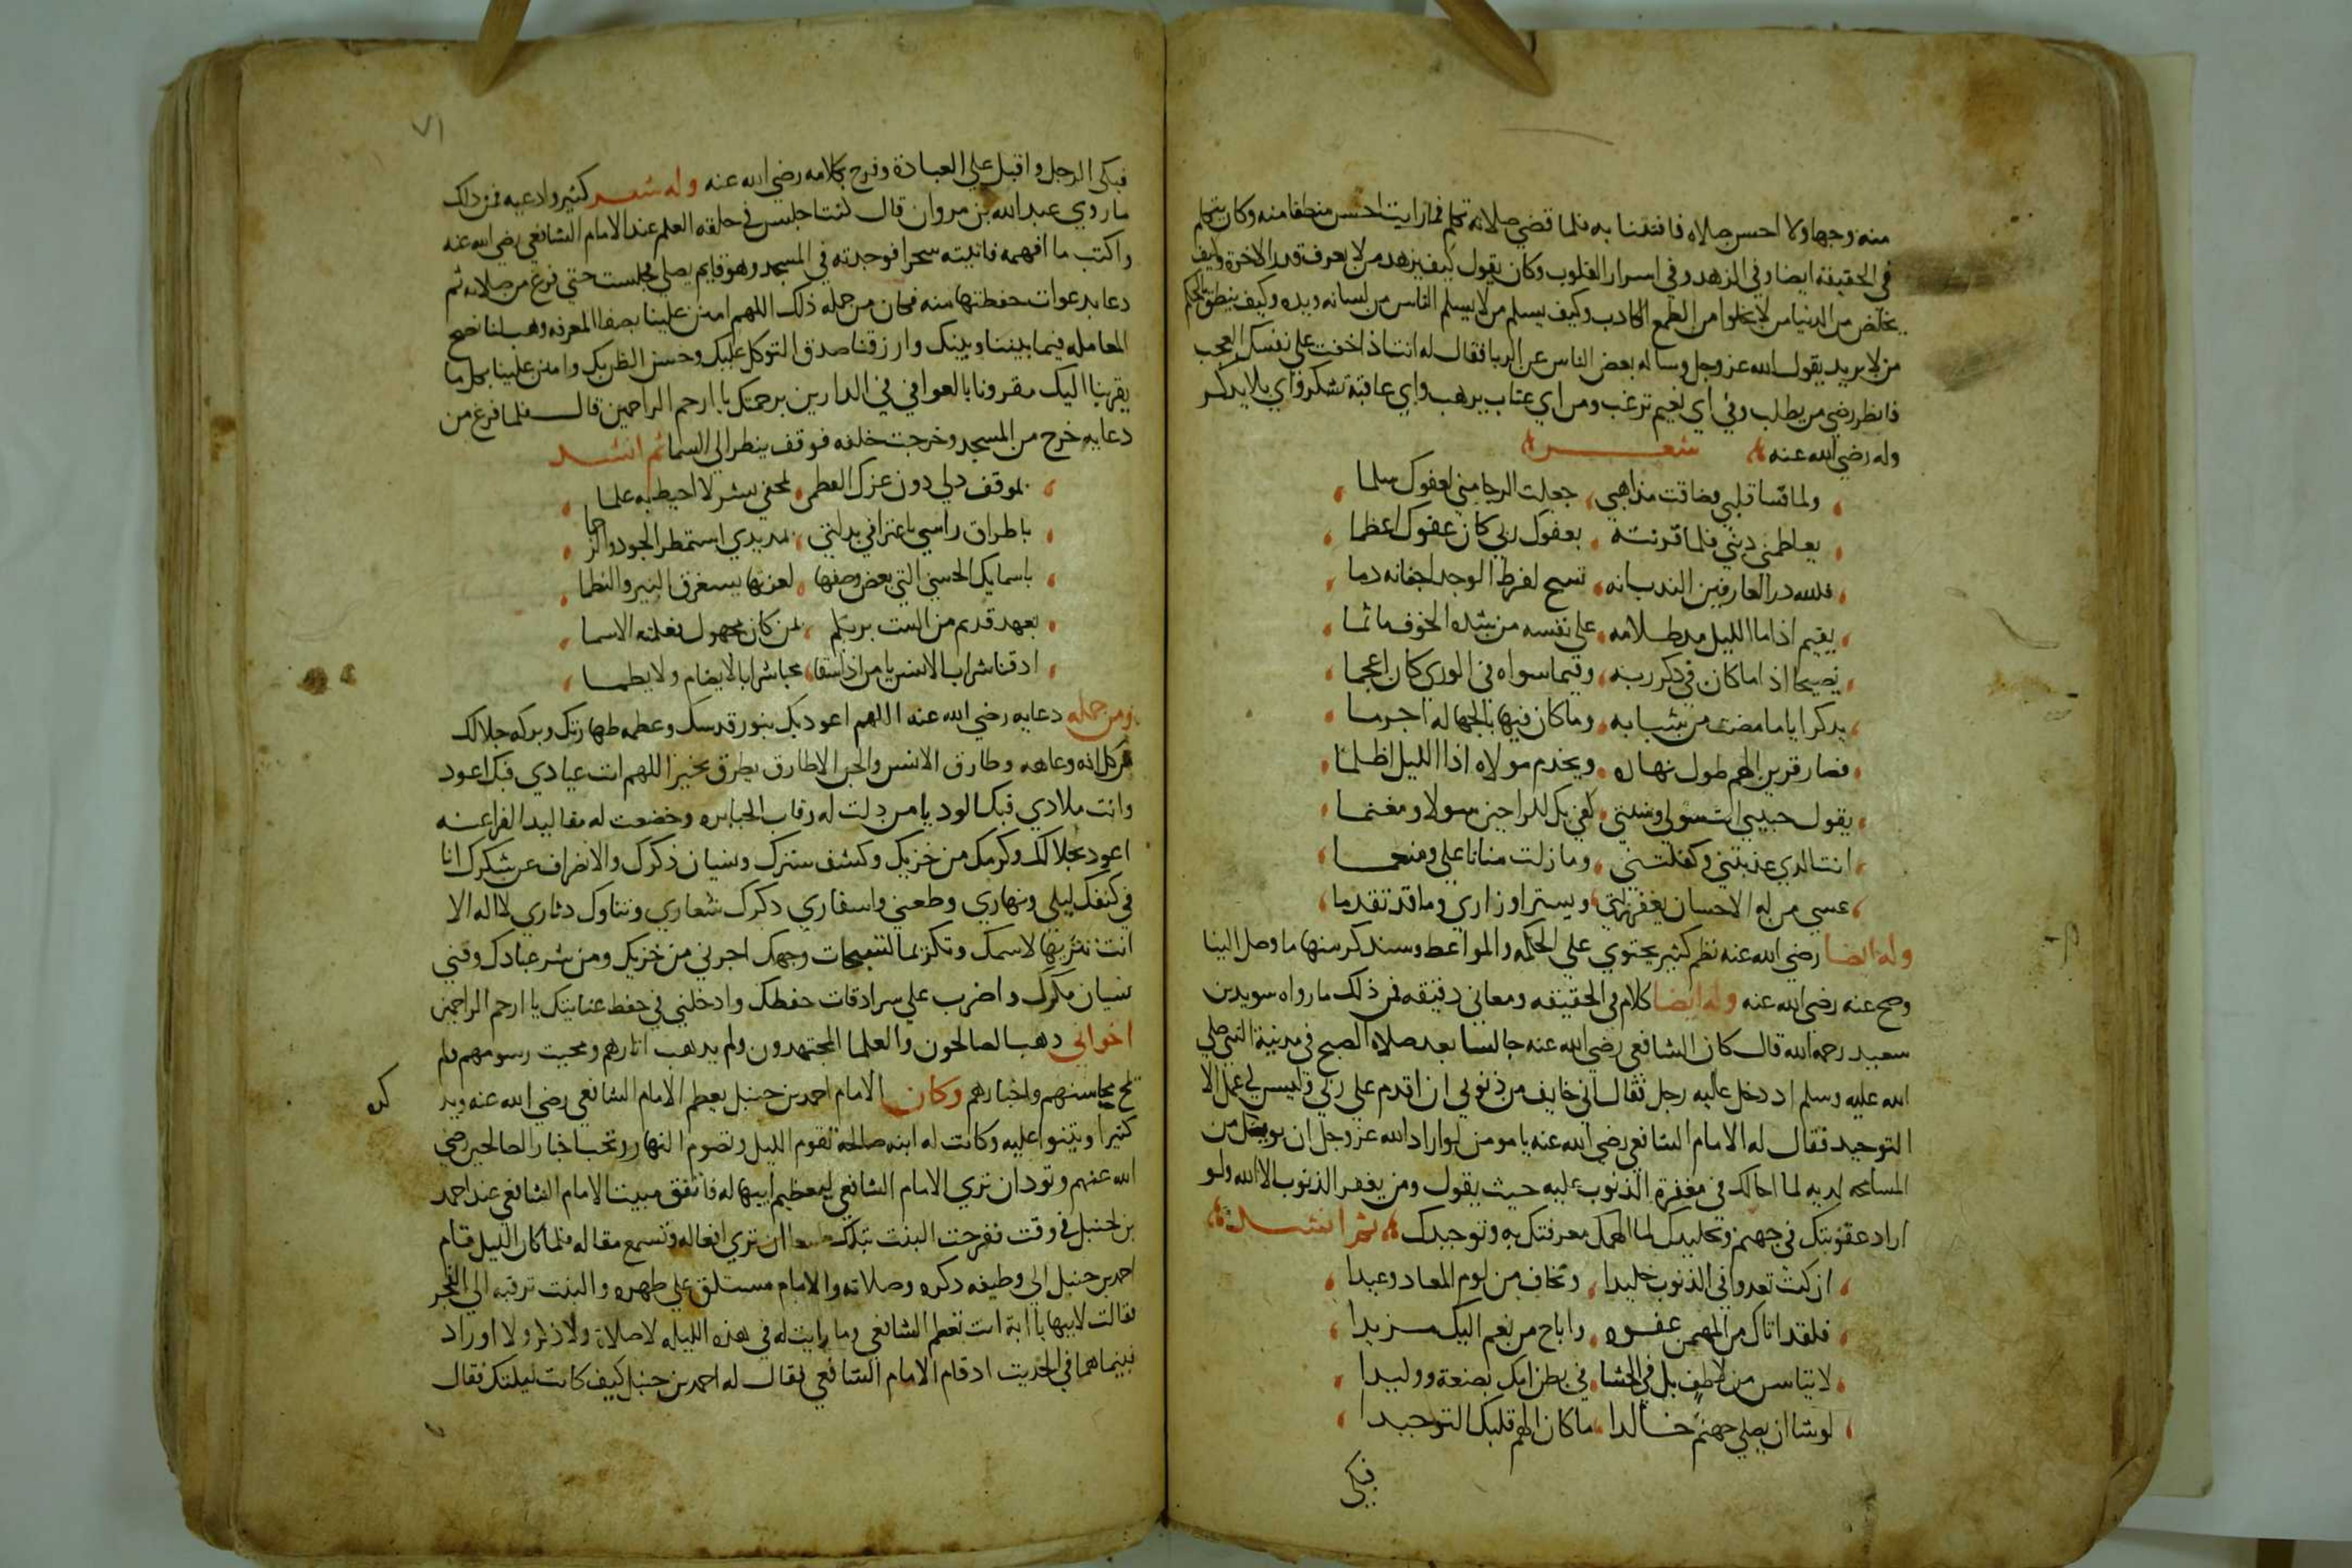 منه وجها ولا احسن صلاه فافتتنا به فلما قضي صلاته تكلم فما رايت احسن منطقا منه وكان يتكلم
في الحقيقة ايضا وفي الزهد وفي اسرار القلوب وكان يقول كيف يزهد من لا يعرف قدر الاخرة وكيف
يخلص من الدنيا من لا يخلوا من الطمع الكادب وكيف يسلم من لا يسلم الناس من لسانه ويده وكيف ينطق بالحكم
من لا يريد بقوله الله عز وجل وساله بعض الناس عن الريا فقال له انت اذا خفت على نفسك العجب
فانظر رضي من يطلب وفي اي نعيم ترغب ومن اي عتاب يرهب واي عاقبة تشكر واي بلا يدكر
وله رضي الله عنه شعر
ولما قسا قلبي وضاقت مذاهبي جعلت الرجا مني لعفوك سلما
يعاظمني ذنبي فلما قرنته بعفوك ربي كان عفوك اعظما
فلله در العارفين الندب انه تسح لفرط الوجد اجفانه دما
يقيم اذا ما الليل مد ظلامه على نفسه من شده الخوف ماتما
فصيحا اذا ما كان في ذكر ربه وفيما سواه في الورى كان اعجما
يدكر اياما مضت من شبابه وما كان فيها بالجهاله اجرما
فصار قرين الهم طول نهاره ويخدم مولاه اذا الليل اظلما
يقول حبيبي انت سولي وبغيتي كفي بك للراجين سولا ومغنما
انت الدي عذيتني وكفلتني وما زلت منانا علي ومنعما
عسي من له الاحسان يغفر زلتي ويستر اوزاري وما قد تقدما
وله ايضا رضي الله عنه نظم كثير يحتوي على الحكمه والمواعظ وسندكر منها ما وصل الينا
وصح عنه رضي الله عنه وله ايضا كلام في الحقيقه ومعاني دقيقه فمن ذلك ما رواه سويد بن
سعيد رحمه الله قال كان الشافعي رضي الله عنه جالسا بعد صلاه الصبح في مدينة النبي صلي
الله عليه وسلم اد دخل عليه رجل فقال اني خايف من ذنوبي ان اقدم على ربي وليس لي عمل الا
التوحيد فقال له الامام الشافعي رضي الله عنه يا مومن لو اراد الله عز وجل ان يويسك من
المسامحه لديه لما احالك في مغفرة الذنوب عليه حيث يقول ومن يغفر الذنوب الا الله ولو
اراد عقوبتك في جهنم وتخليدك لما الهمك معرفتك به وتوحيدك ثم انشد
ان كنت تعدوا في الذنوب جليدا وتخاف من يوم المعاد وعيدا
فلقد اتاك من المهيمن عفوه واباح من نعم اليك مزيدا
لا تياسن من لطف بك في الحشا في بطن امك بضعة ووليدا
لو شا ان يصلي جهنم خالدا ما كان الهم قلبك التوحيدا
فبكى
٧١
فبكى الرجل واقبل على العبادة وفرح بكلامه رضي الله عنه وله شعر كثير وادعيه فمن دلك
ما روي عبد الله بن مروان قال كنت اجلس في حلقه العلم عند الامام الشافعي رضي الله عنه
واكتب ما افهمه فاتيته سحرا فوجدته في المسجد وهو قايم يصلي فجلست حتي فرغ من صلاته ثم
دعا بدعوات حفظتها منه فكان من جمله ذلك اللهم امنن علينا بصفا المعرفه وهب لنا تصحيح
المعامله فيما بيننا وبينك وارزقنا صدق التوكل عليك وحسن الظن بك وامنن علينا بكل ما
يقربنا اليك مقرونا بالعوافي في الدارين برحمتك يا ارحم الراحمين قال فلما فرغ من
دعايه خرج من المسجد وخرجت خلفه فوقف ينظر الي السما ثم انشد
بموقف دلي دون عزك العظمي بمخفي سر لا احيط به علما
باطراق راسي باعترافي بدلتي بمد يدي استمطر الجود والرحما
باسمايك الحسني التي بعض وصفها لعزتها يستغرق النير والنظما
بعهد قديم من الست بربكم بمن كان مجهول فعلمته الاسما
ادقنا شراب الانس يا من اذا سقا محبا شرابا لا يضام ولا يظما
ومن جمله دعايه رضي الله عنه اللهم اعود بك بنور قدسك وعظمه طهارتك وبركه جلالك
من كل افه وعاهه وطارق الانس والجن الا طارق يطرق بخير اللهم انت عيادي فبك اعود
وانت ملادي فبك الود يا من دلت له رقاب الجبابره وخضعت له مقاليد الفراعنه
اعود بجلالك وكرمك من خزيك وكشف سترك ونسيان ذكرك والانصراف عن شكرك انا
في كنفك ليلي ونهاري وظعني واسفاري دكرك شعاري وثناوك دثاري لا اله الا
انت تنزيها لاسمك وتكريما لسبحات وجهك اجرني من خزيك ومن شر عبادك وقني
سيات مكرك واضرب علي سرادقات حفظك وادخلني في حفظ عنايتك يا ارحم الراحمين
اخواني دهب الصالحون والعلما المجتهدون ولم يدهب اثارهم ومحيت رسومهم ولم
تمح محاسنهم واخبارهم وكان الامام احمد بن حنبل يعظم الامام الشافعي رضي الله عنه ويد
كره
كثيرا ويثنوا عليه وكانت له ابنه صالحة تقوم الليل وتصوم النهار وتحب اخبار الصالحين رضي
الله عنهم وتود ان تري الامام الشافعي لتعظيم ابيها له فاتفق مبيت الامام الشافعي عند احمد
بن حنبل في وقت ففرحت البنت بتلك ان تري افعاله وتسمع مقاله فلما كان الليل قام
احمد بن حنبل الي وظيفه دكره وصلاته والامام مستلق على ظهره والبنت ترقبه الي الفجر
فقالت لابيها يا ابة انت تعظم الشافعي وما رايت له في هذه الليله لا صلاة ولا ذكر ولا اوراد
فبينما هما في الحديت اد قام الامام الشافعي فقال له احمد بن حنبل كيف كانت ليلتك فقال